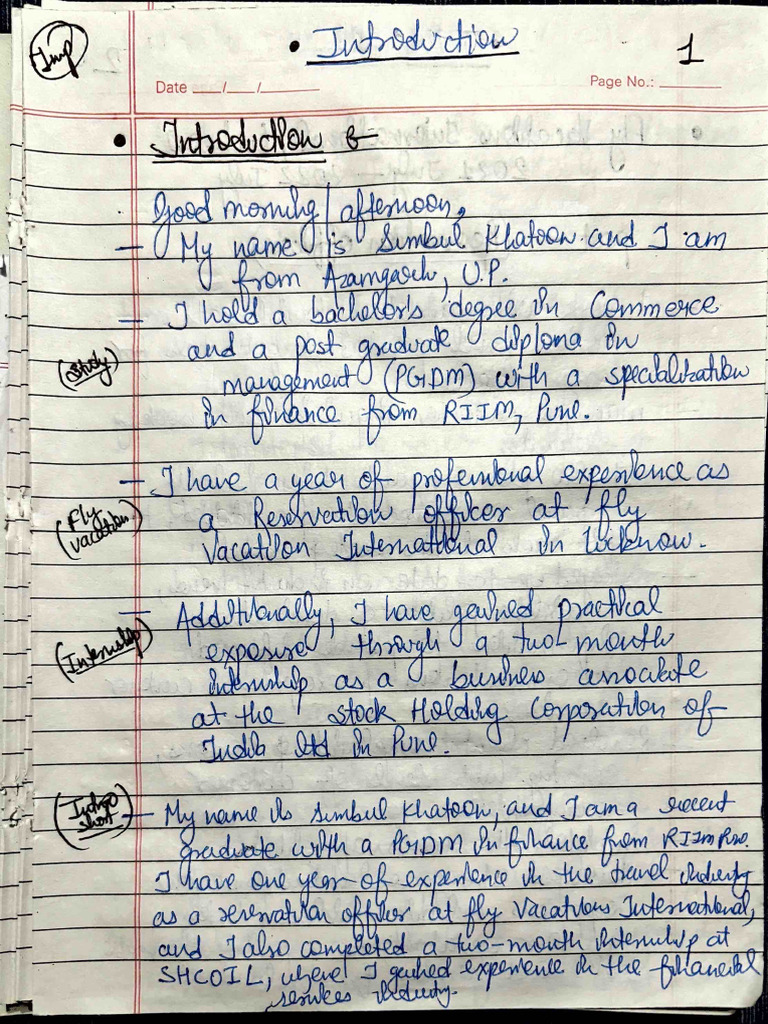 Imp
• Introduction
1
Date __/__/____
Page No.: ______
• Introduction :-
Good morning/afternoon,
— My name is Simbul Khatoon and I am
from Azamgarh, U.P.
— I hold a bachelor's degree in Commerce
(Study)
and a post graduate diploma in
management (PGDM) with a specialization
in finance from RIIM, Pune.
— I have a year of professional experience as
(Fly vacation)
a Reservation officer at fly
Vacation International in Lucknow.
— Additionally, I have gained practical
(Internship)
exposure through a two-month
internship as a business associate
at the Stock Holding Corporation of
India ltd in Pune.
(Intro short)
— My name is Simbul Khatoon, and I am a recent
graduate with a PGDM in finance from RIIM Pune.
I have one year of experience in the travel industry
as a reservation officer at fly Vacations International,
and I also completed a two-month internship at
SHCOIL, where I gained experience in the financial
services industry.